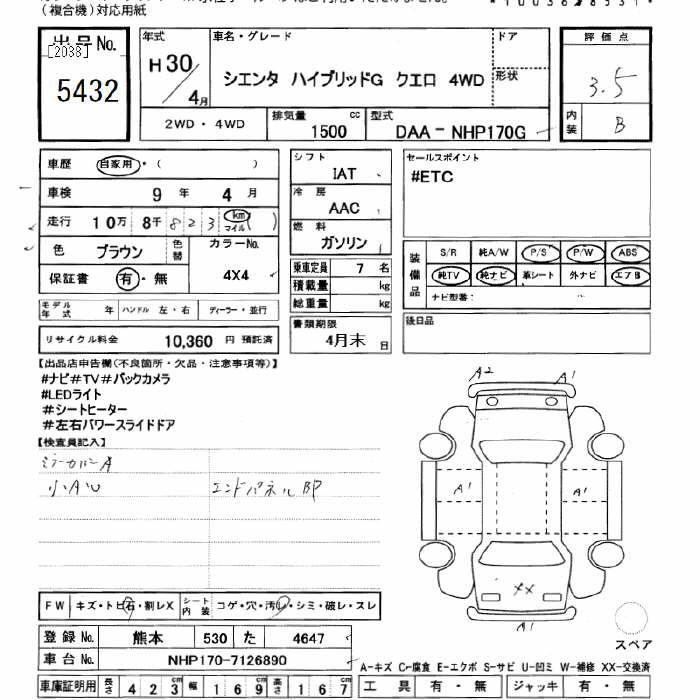 (複合機)対応用紙
出品No.
[2038]
5432
年式
H30/4月
車名・グレード
シエンタ ハイブリッドG クエロ 4WD
ドア
形状
2WD・4WD
排気量
1500 cc
型式
DAA-NHP170G
評価点
3.5
内装
B
車歴
自家用・( )
車検
9 年 4 月
走行
10万 8千 8 2 3 km ( ) マイル
色
ブラウン
色替
カラーNo.
4X4
保証書
有・無
モデル年式 年
ハンドル 左・右
ディーラー・並行
リサイクル料金 10,360 円 預託済
シフト
IAT
冷房
AAC
燃料
ガソリン
乗車定員 7 名
積載量 kg
総重量 kg
書類期限
4月末 日
セールスポイント
#ETC
装備品
S/R 純A/W P/S P/W ABS
純TV 純ナビ 革シート 外ナビ エアB
ナビ型番:
後日品
【出品店申告欄(不良箇所・欠品・注意事項等)】
#ナビ#TV#バックカメラ
#LEDライト
#シートヒーター
#左右パワースライドドア
【検査員記入】
小AU
エンドパネルBP
A2 A1
A1 A1
XX
A1
スペア
FW キズ・トビ石・割レX
シート内装 コゲ・穴・汚レ・シミ・破レ・スレ
登録No. 熊本 530 た 4647
車台No. NHP170-7126890
車庫証明用 長さ 423 cm 幅 169 cm 高さ 167 cm
A-キズ C-腐食 E-エクボ S-サビ U-凹ミ W-補修 XX-交換済
工具 有・無 ジャッキ 有・無